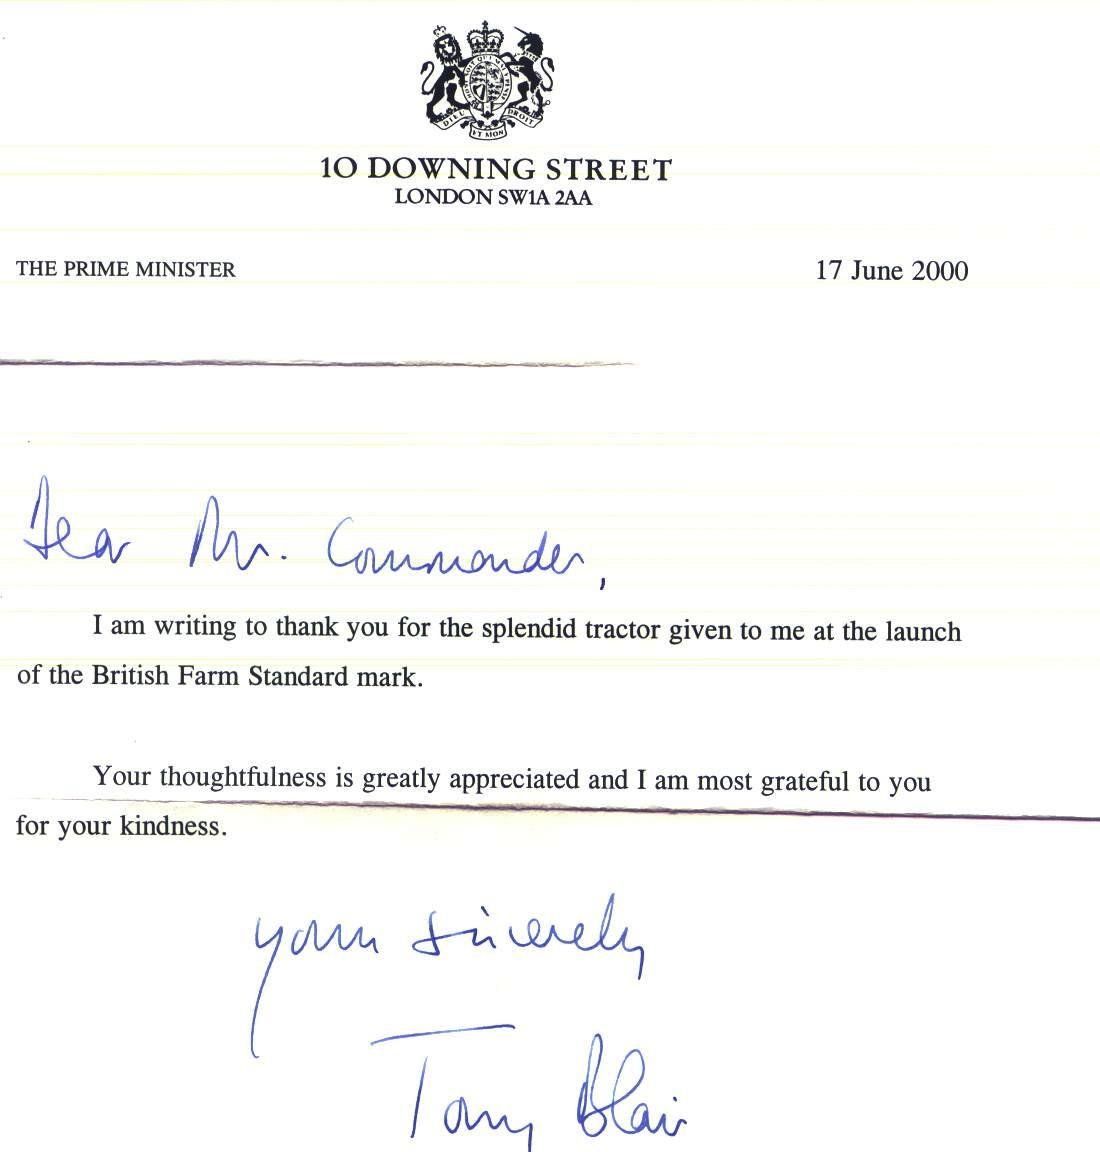 DIEU ET MON DROIT
10 DOWNING STREET
LONDON SW1A 2AA
THE PRIME MINISTER 17 June 2000
Dear Mr. Commander,
I am writing to thank you for the splendid tractor given to me at the launch
of the British Farm Standard mark.
Your thoughtfulness is greatly appreciated and I am most grateful to you
for your kindness.
Yours sincerely
Tony Blair